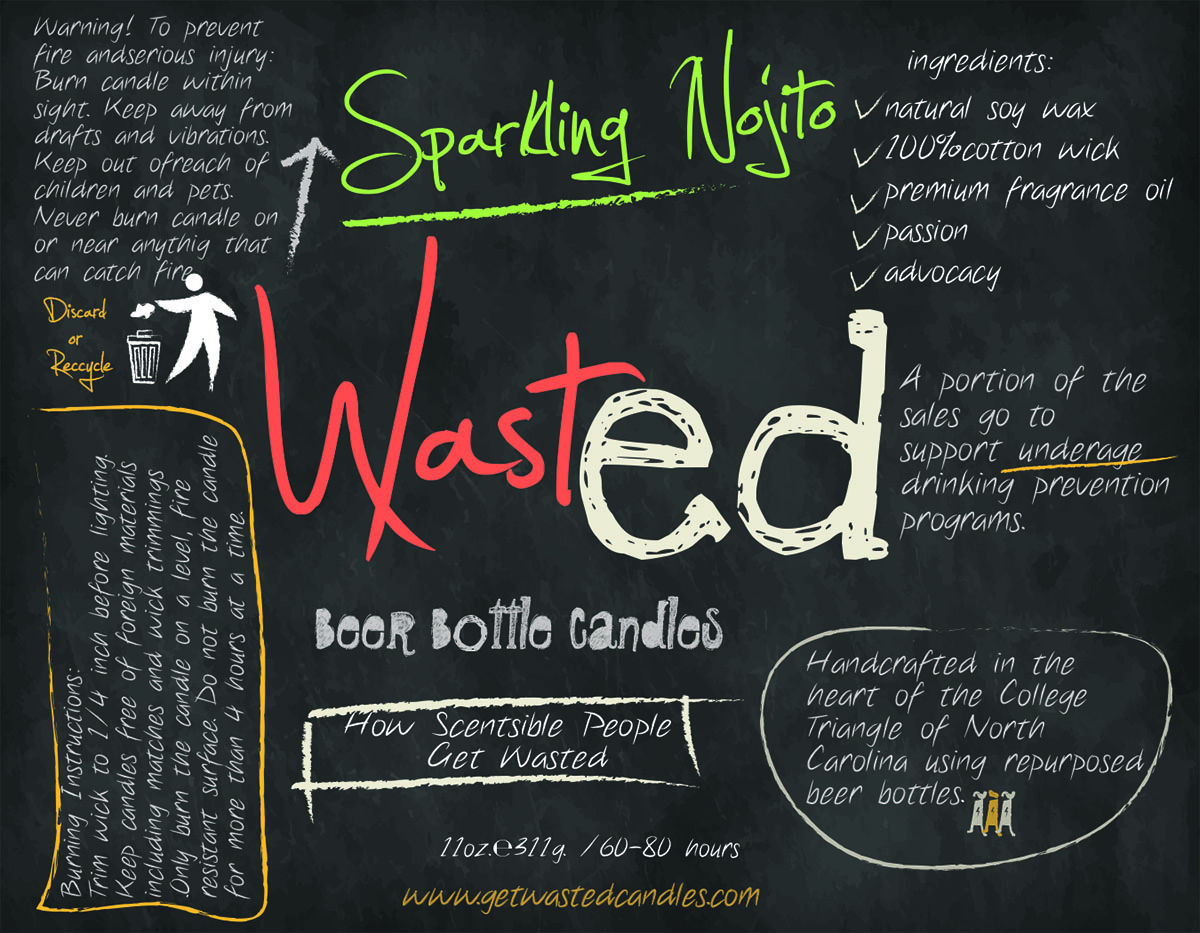 Warning! To prevent
fire andserious injury:
Burn candle within
sight. Keep away from
drafts and vibrations.
Keep out ofreach of
children and pets.
Never burn candle on
or near anythig that
can catch fire
Discard
or
Reccycle
Burning Instructions:
Trim wick to 1/4 inch before lighting.
Keep candles free of foreign materials
including matches and wick trimmings
.Only burn the candle on a level, fire
resistant surface. Do not burn the candle
for more than 4 hours at a time.
Sparkling Nojito
Wasted
Beer Bottle Candles
How Scentsible People
Get Wasted
11oz.℮311g. /60-80 hours
www.getwastedcandles.com
ingredients:
natural soy wax
100%cotton wick
premium fragrance oil
passion
advocacy
A portion of the
sales go to
support underage
drinking prevention
programs.
Handcrafted in the
heart of the College
Triangle of North
Carolina using repurposed
beer bottles.